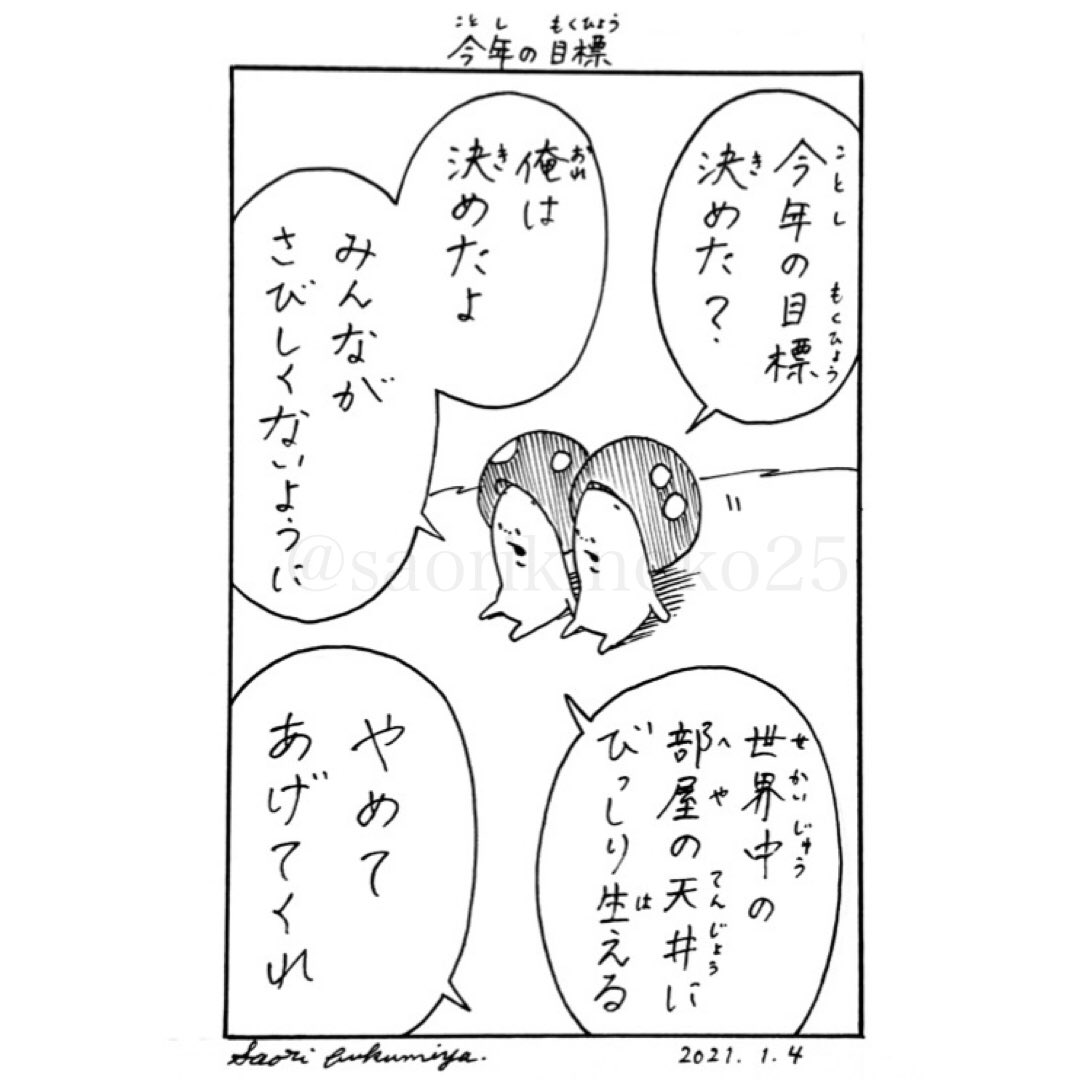 今年の目標
今年の目標
決めた?
俺は
決めたよ
みんなが
さびしくないように
世界中の
部屋の天井に
びっしり生える
やめて
あげてくれ
@saorikinoko25
Saori Fukumiya.
2021.1.4